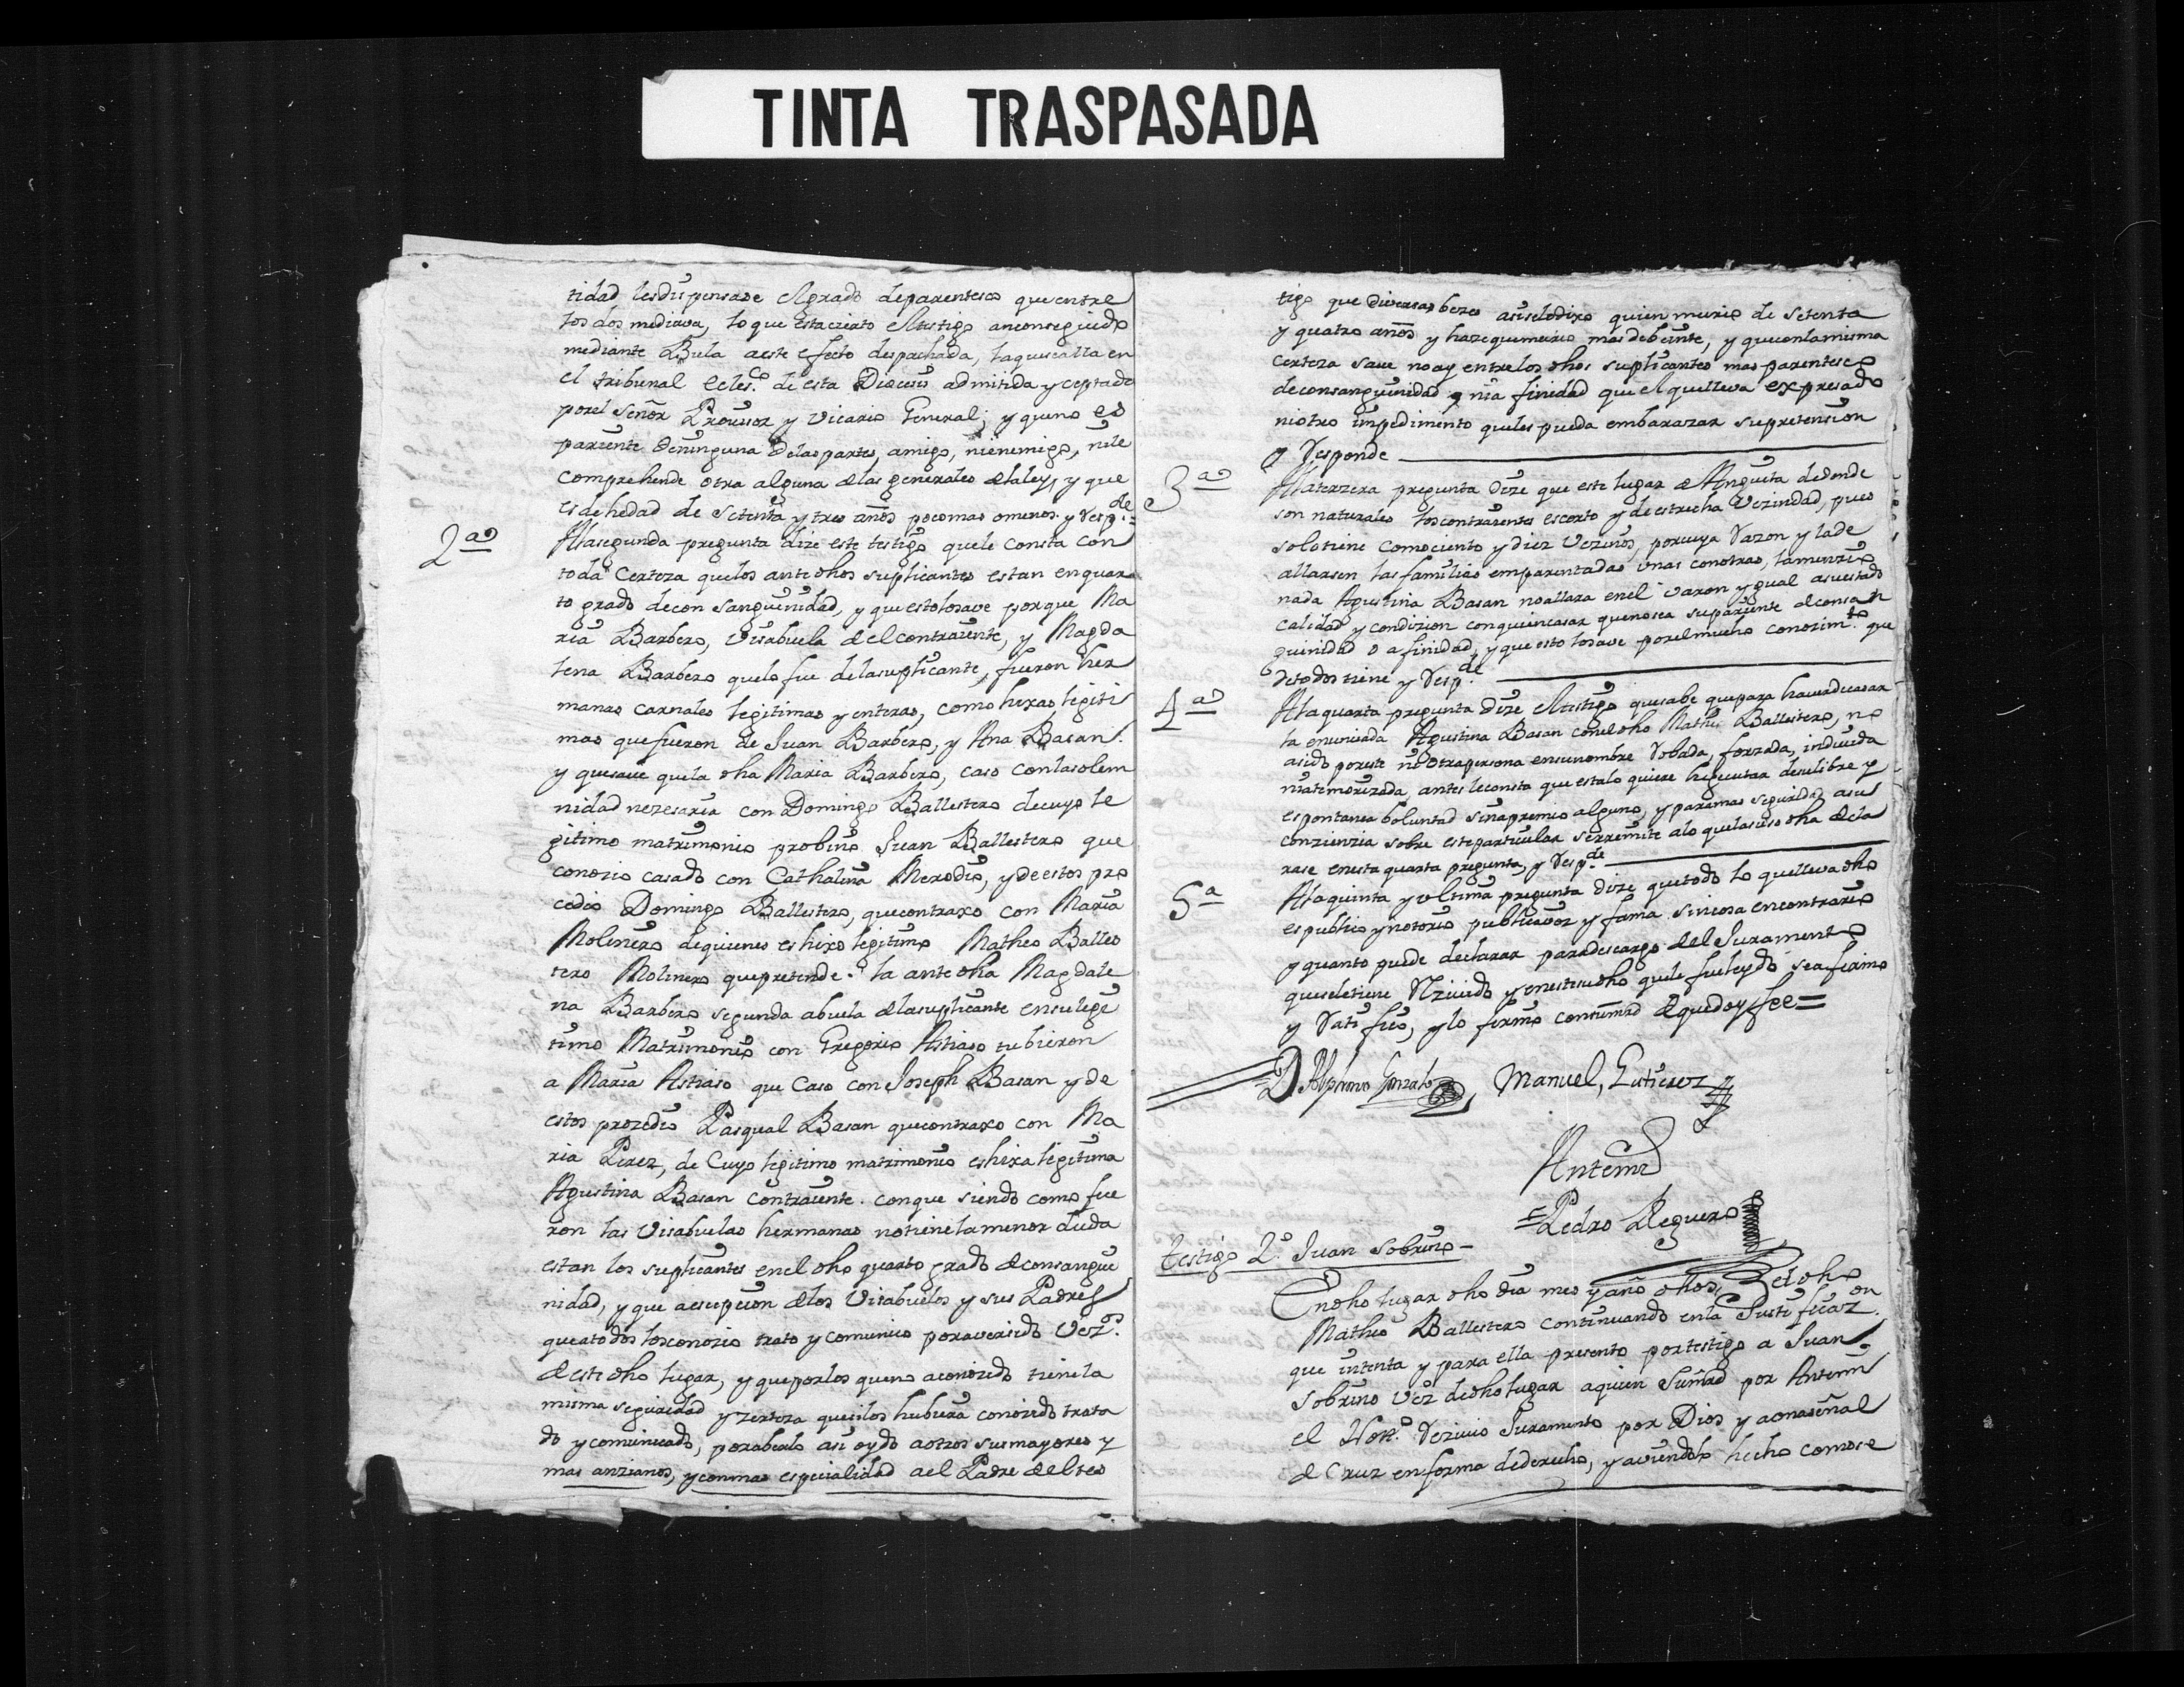 TINTA TRASPASADA
tidad les dispensase el grado de parentesco que entre
los dos mediava, lo que esta cierto el testigo an conseguido
mediante Bula a este efecto despachada, la que se alla en
el tribunal Ecles.co de esta Diocesis admitida y ceptada
por el Señor Provisor y Vicario General; y que no es
pariente de ninguna de las partes, amigo, ni enemigo, ni le
comprehende otra alguna de las generales de la ley, y que
es de hedad de setenta y tres años poco mas o menos. y Resp.de=
2.a
A la segunda pregunta dize este testigo que le consta con
toda Certeza que los antedhos suplicantes estan en quar
to grado de consanguinidad, y que esto lo save porque Ma
ria Barbero, Visabuela de el contraiente, y Magda
lena Barbero que lo fue de la suplicante, fueron her
manas carnales legitimas y enteras, como hixas legiti
mas que fueron de Juan Barbero, y Ana Basan.
y que save que la dha Maria Barbero, caso con la solem
nidad nezesaria con Domingo Ballestero de cuyo le
gitimo matrimonio probino Juan Ballestero que
conozio casado con Cathalina Merodio, y de estos pro
cedio Domingo Ballestero, que contraxo con Maria
Molinero de quienes es hixo legitimo Matheo Balles
tero Molinero que pretende. la antedha Magdale
na Barbero segunda abuela de la suplicante en su legi
timo Matrimonio con Gregorio Astiaso tubieron
a Maria Astiaso que Caso con Joseph Basan y de
estos prozedio Pasqual Basan que contraxo con Ma
ria Perez, de Cuyo legitimo matrimonio es hixa legitima
Agustina Basan contraiente. con que siendo como fue
ron las Visabuelas hermanas no tiene la menor duda
estan los suplicantes en el dho quarto grado de consangui
nidad, y que a escepcion de los Visabuelos y sus Padres
que a todos los conozio trato y comunico por aver sido Vez.os
de este dho lugar, y que por los que no a conozido tiene la
misma seguridad y zerteza que si los hubiera conozido trata
do y comunicado, por aberlo asi oydo a otros sus mayores y
mas anzianos, y con mas especialidad a el Padre del tes
tigo que diversas bezes asi se lo dixo quien murio de setenta
y quatro años y haze que murio mas de beinte, y que con la misma
certeza save no ay entre los dhos suplicantes mas parentesco
de consanguinidad y ni a finidad que el que lleva expresado
ni otro impedimento que les pueda embarazar su pretension
y Responde
3.a
A la terzera pregunta dize que este lugar de Anguita de donde
son naturales los contraientes es corto y de estrecha Vezindad, pues
solo tiene como ciento y diez Vezinos, por cuya Razon y la de
allarsen las familias emparentadas unas con otras, la menzio
nada Agustina Basan no allara en el varon ygual a su estado
calidad y condizion con quien casar que no sea su pariente de consan
guinidad o a finidad, y que esto lo save por el mucho conozim.to que
de todos tiene y Resp.de
4.a
A la quarta pregunta dize el testigo que sabe que para haver de casar
la enunciada Agustina Basan con el dho Matheo Ballestero, no
a sido por este ni otra persona en su nombre Robada, forzada, induzida
ni atemorizada, antes le consta que esta lo quiere hegecutar de su libre y
espontanea boluntad sin apremio alguno, y para mas seguridad a su
conzienzia sobre este particular se rremite a lo que la suso dha decla
rase en esta quarta pregunta, y Resp.de
5.a
A la quinta y ultima pregunta dize que todo lo que lleva dho
es publico y notorio publica voz y fama sin cosa en contrario
y quanto puede declarar para descargo del Juramento
que se le tiene Rezivido y en este su dho que le fue leydo se afirmo
y Ratifico, y lo firmo con su md de que doy fee=
D. Alphonso Gonzalo Manuel, Gutierez
Antemi
=Pedro Reguero
testigo 2.o Juan Sobrino-
En dho lugar dho dia mes y año dhos, el dho
Matheo Ballestero continuando en la Justificaz.on
que intenta y para ella presento por testigo a Juan
Sobrino Vez.o de dho lugar a quien Su md por Antemi
el Nott.o Rezivio Juramento por Dios y a una señal
de Cruz en forma de derecho, y aviendolo hecho como se